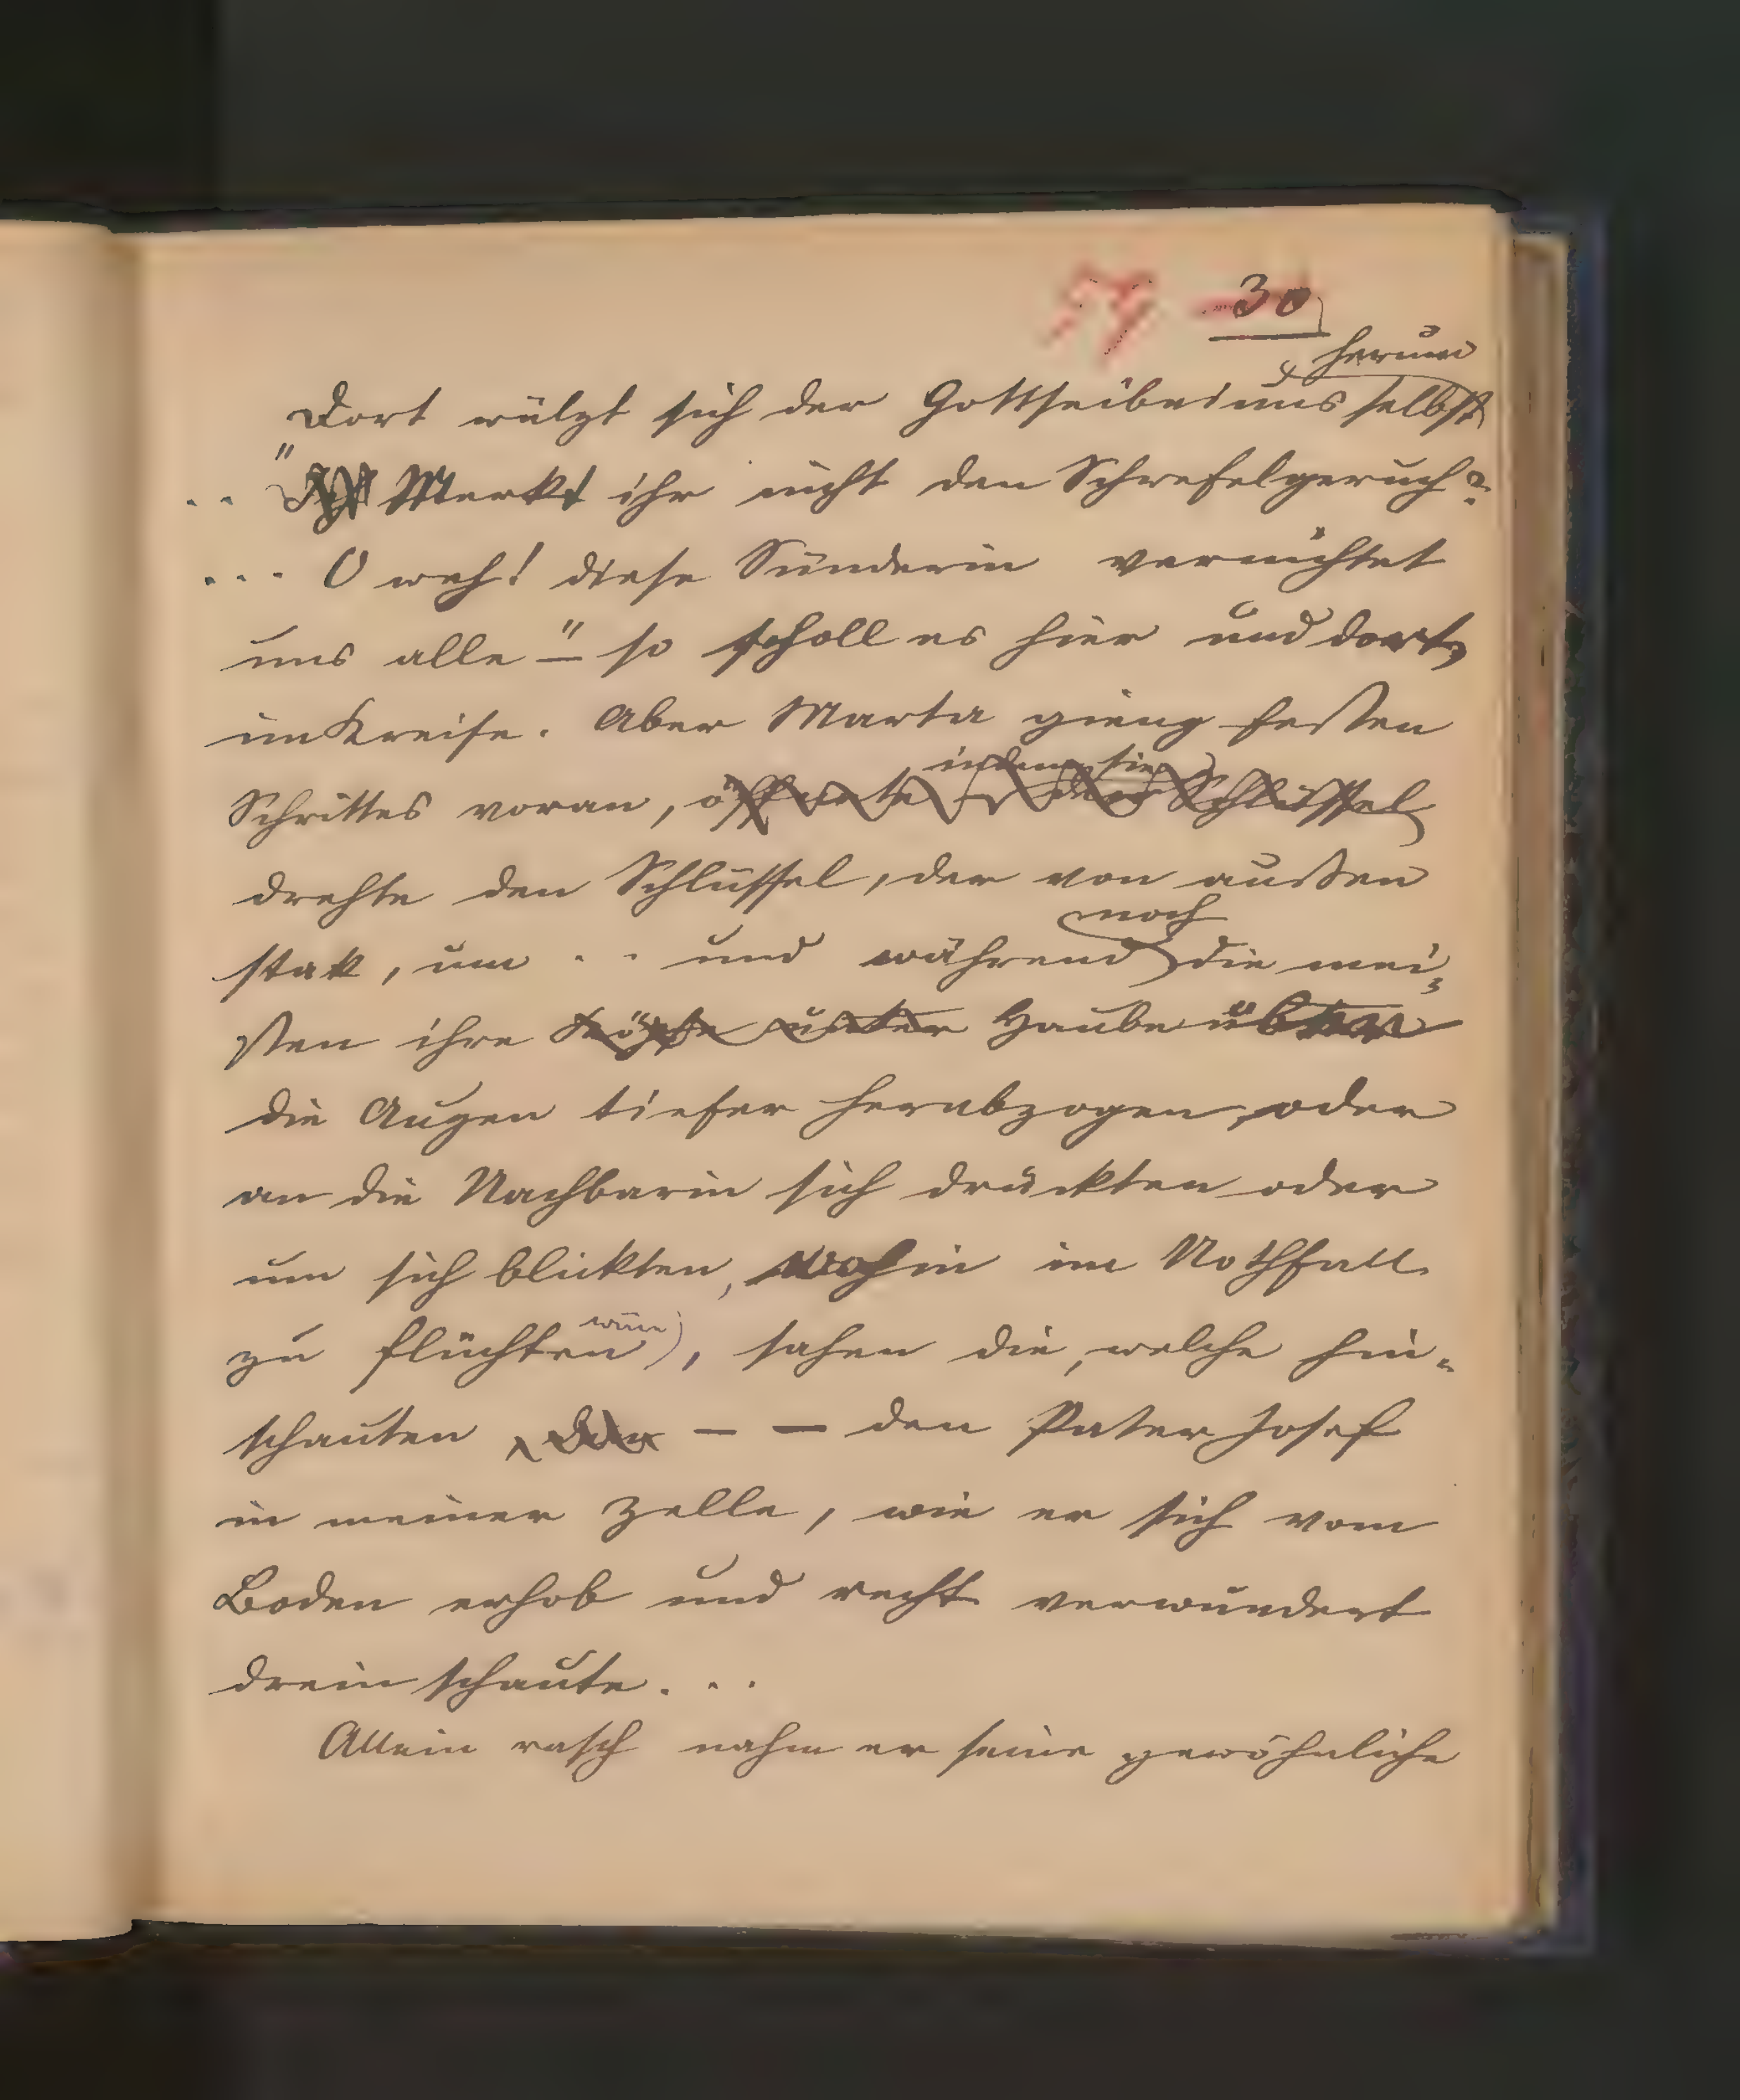 59 30
herum
Dort wälzt sich der Gottseibeiuns selbst
" Merkt ihr nicht den Schwefelgeruch?
.. ... O weh! diese Sünderin vernichtet
uns alle" – so scholl es hier und dort,
im Kreise. Aber Marta gieng festen
indem sie
Schrittes voran, öffnete den Schlüssel
drehte den Schlüssel, der von außen
noch
stak, um .. und während die mei-
sten ihre Köpfe unter Haube über
die Augen tiefer herabzogen, oder
an die Nachbarin sich drückten oder
um sich blickten, wohin im Nothfall
wäre
zu flüchten, sahen die, welche hin-
schauten, den – – den Pater Josef
in meiner Zelle, wie er sich vom
Boden erhob und recht verwundert
drein schaute...
Allein rasch nahm er seine gewöhnliche